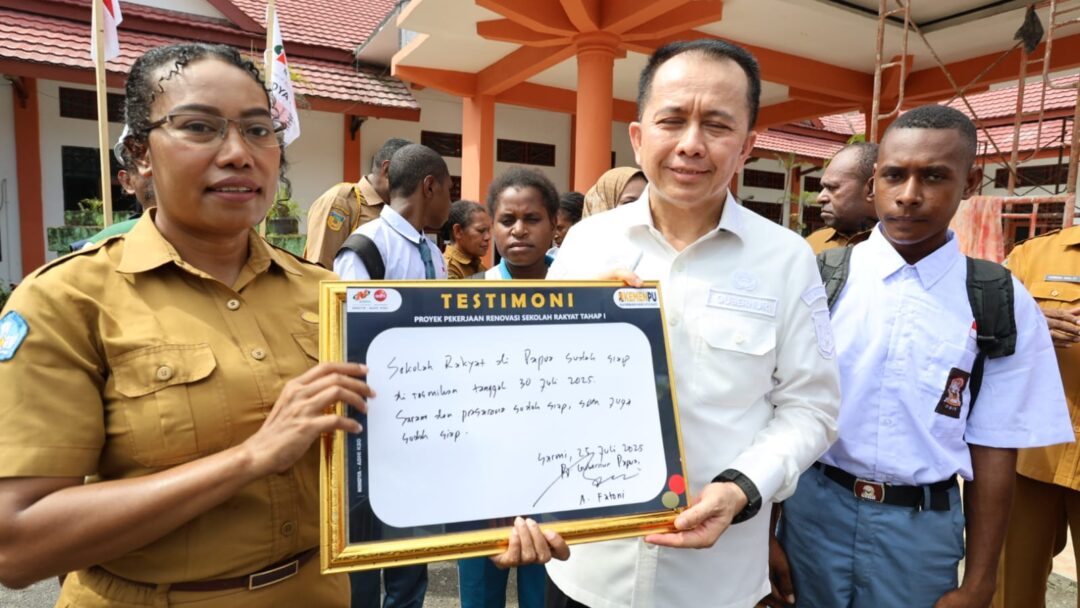 TESTIMONI
PROYEK PEKERJAAN RENOVASI SEKOLAH RAKYAT TAHAP I
KEMENPU
Sekolah Rakyat di Papua sudah siap
di resmikan tanggal 30 Juli 2025.
Saran dan prasarana sudah siap, SDM juga
sudah siap.
Sarmi, 25 Juli 2025
Pj Gubernur Papua
A. Fatoni
GUBERNUR